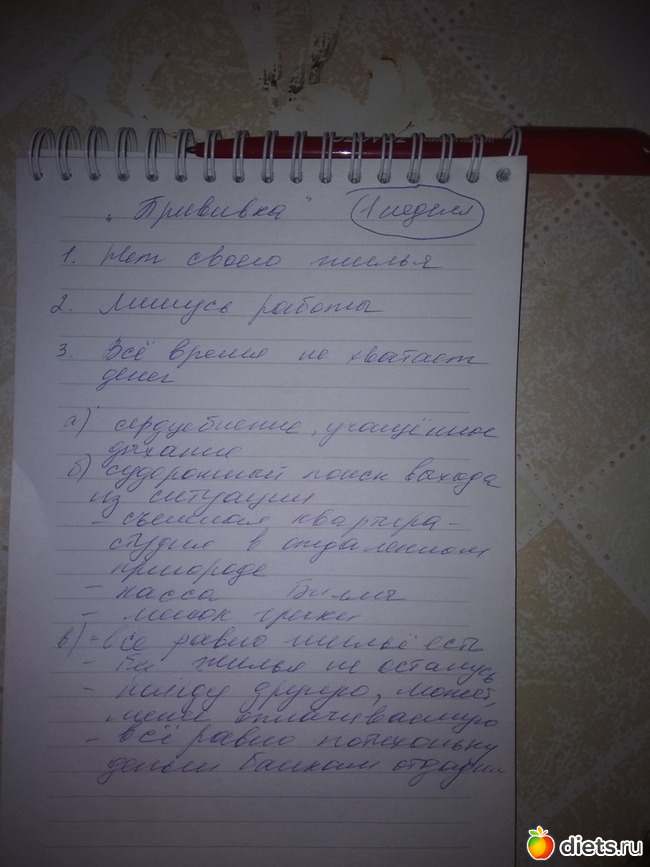 „Прививка" 1 неделя
1. Нет своего жилья
2. Минус работы
3. Всё время не хватает
денег
а) сердцебиение, учащённое
дыхание
б) судорожный поиск выхода
из ситуации
- съемная квартира-
студия в отдаленном
пригороде
- касса Билла
- мешок гречки
в) - все равно жильё есть
- Без жилья не останусь
- найду другую, может,
менее оплачиваемую
- всё равно потихоньку
деньги банкам отдадим
diets.ru